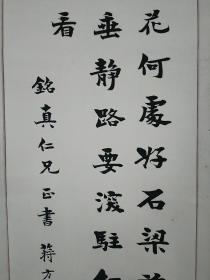 花何處好石梁
垂靜路要駐
看
銘真仁兄正書 蔣方